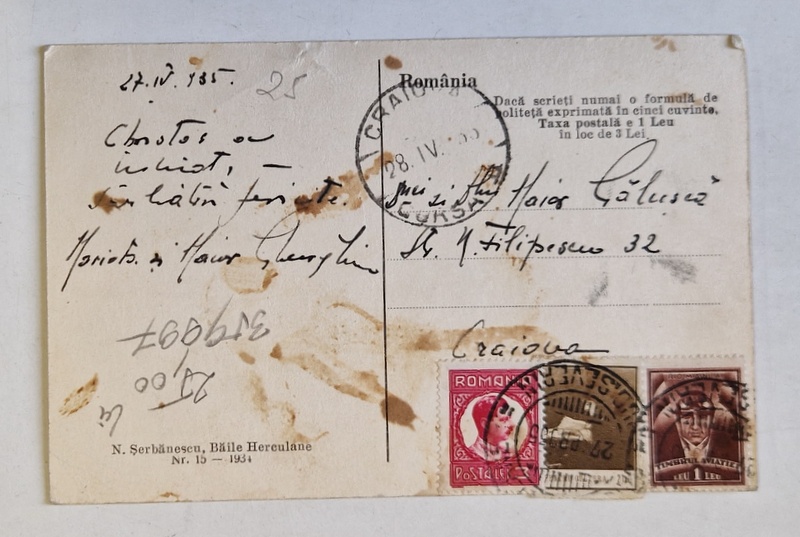 27.IV.935.
25
Christos a
înviat, –
Sărbători fericite.
și Maior
359997
25,00
lei
N. Șerbănescu, Băile Herculane
Nr. 15 — 1934
România
Dacă scrieți numai o formulă de
politeță exprimată în cinci cuvinte,
Taxa postală e 1 Leu
în loc de 3 Lei
CRAIOVA
28.IV. 35
CURSA
și Maior Gălușcă
Str. N. Filipescu 32
Craiova
ROMANIA
POSTA LEI
SEVERIN
27
TIMBRUL AVIAȚIEI
LEU 1 LEU